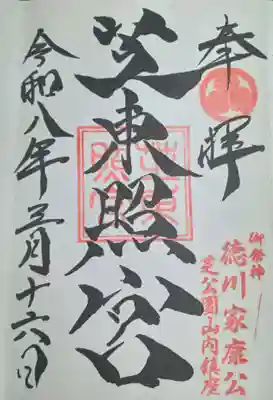 奉輝
芝東照宮
令和八年三月十六日
御祭神
徳川家康公
芝公園山内鎮座